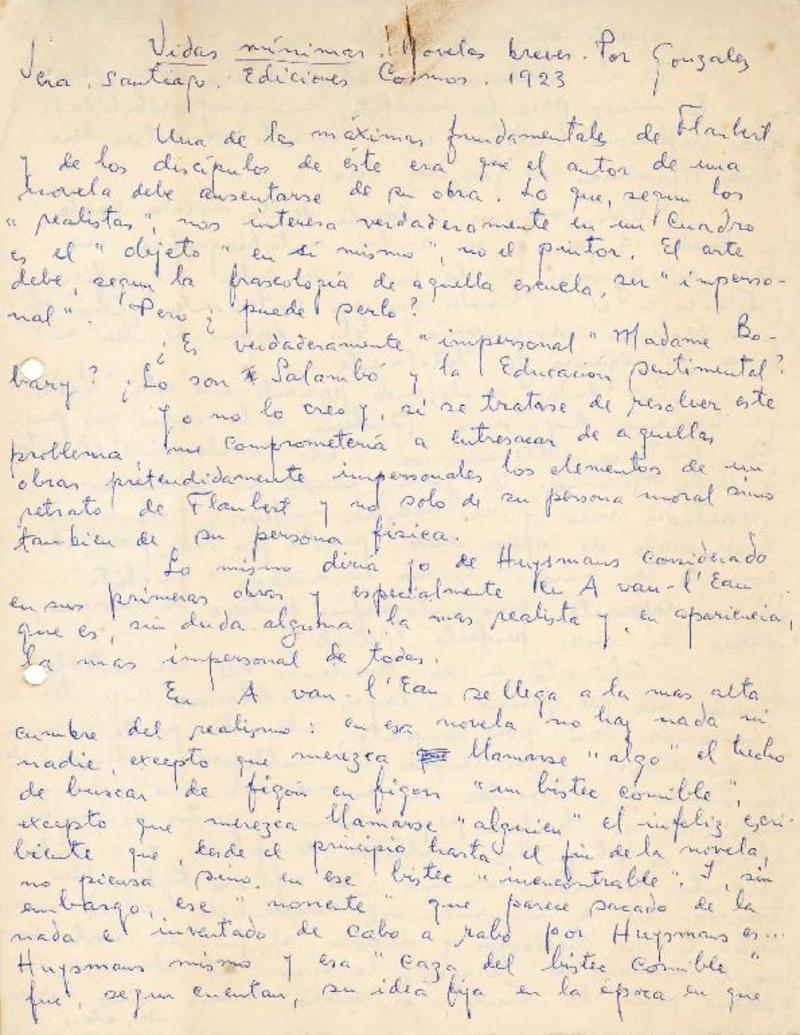 Vidas mínimas. Novelas breves. Por Gonzales
Vera. Santiago. Ediciones Cosmos. 1923
Una de las máximas fundamentales de Flaubert
y de los discípulos de éste era que el autor de una
novela debe ausentarse de su obra. Lo que, segun los
"realistas", nos interesa verdaderamente en un cuadro
es el "objeto" en sí mismo", no el pintor. El arte
debe, segun la fraseología de aquella escuela, ser "imperso-
nal". Pero ¿puede serlo?
¿Es verdaderamente "impersonal" Madame Bo-
bary? ¿Lo son Salambó y la Educación sentimental?
Yo no lo creo y, si se tratase de resolver este
problema, me comprometería a entresacar de aquellas
obras pretendidamente impersonales los elementos de un
retrato de Flaubert y no solo de su persona moral sino
tambien de su persona física.
Lo mismo diría yo de Huysmans considerado
en sus primeras obras y especialmente en A vau-l'Eau
que es, sin duda alguna, la mas realista y, en apariencia,
la mas impersonal de todas.
En A vau-l'Eau se llega a la mas alta
cumbre del realismo: en esa novela no hay nada ni
nadie, excepto que merezca llamarse "algo" el hecho
de buscar de figón en figón "un bistec comible",
excepto que merezca llamarse "alguien" el infeliz escri-
biente que, desde el principio hasta el fin de la novela,
no piensa sino en ese bistec "inencontrable". Y, sin
embargo, ese "monente" que parece sacado de la
nada e inventado de cabo a rabo por Huysmans es...
Huysmans mismo y esa "caza del bistec comible"
fue, segun cuentan, su idea fija en la época en que